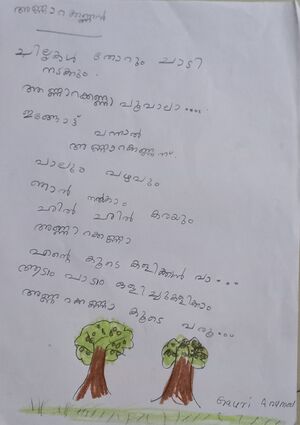 അണ്ണാറക്കണ്ണൻ
ചില്ലകൾ തോറും ചാടി
നടക്കും
അണ്ണാറക്കണ്ണാ പൂവാലാ....
ഇങ്ങോട്ട് വന്നാൽ
അണ്ണാറക്കണ്ണന്
പാലും പഴവും
ഞാൻ നൽകാം
ഛിൽ ഛിൽ കരയും
അണ്ണാറക്കണ്ണാ
എന്റെ കൂടെ കളിക്കാൻ വാ...
ആടാം പാടാം കളിച്ചുകളിക്കാം
അണ്ണാറക്കണ്ണാ കൂടെ വരൂ...
Gauri